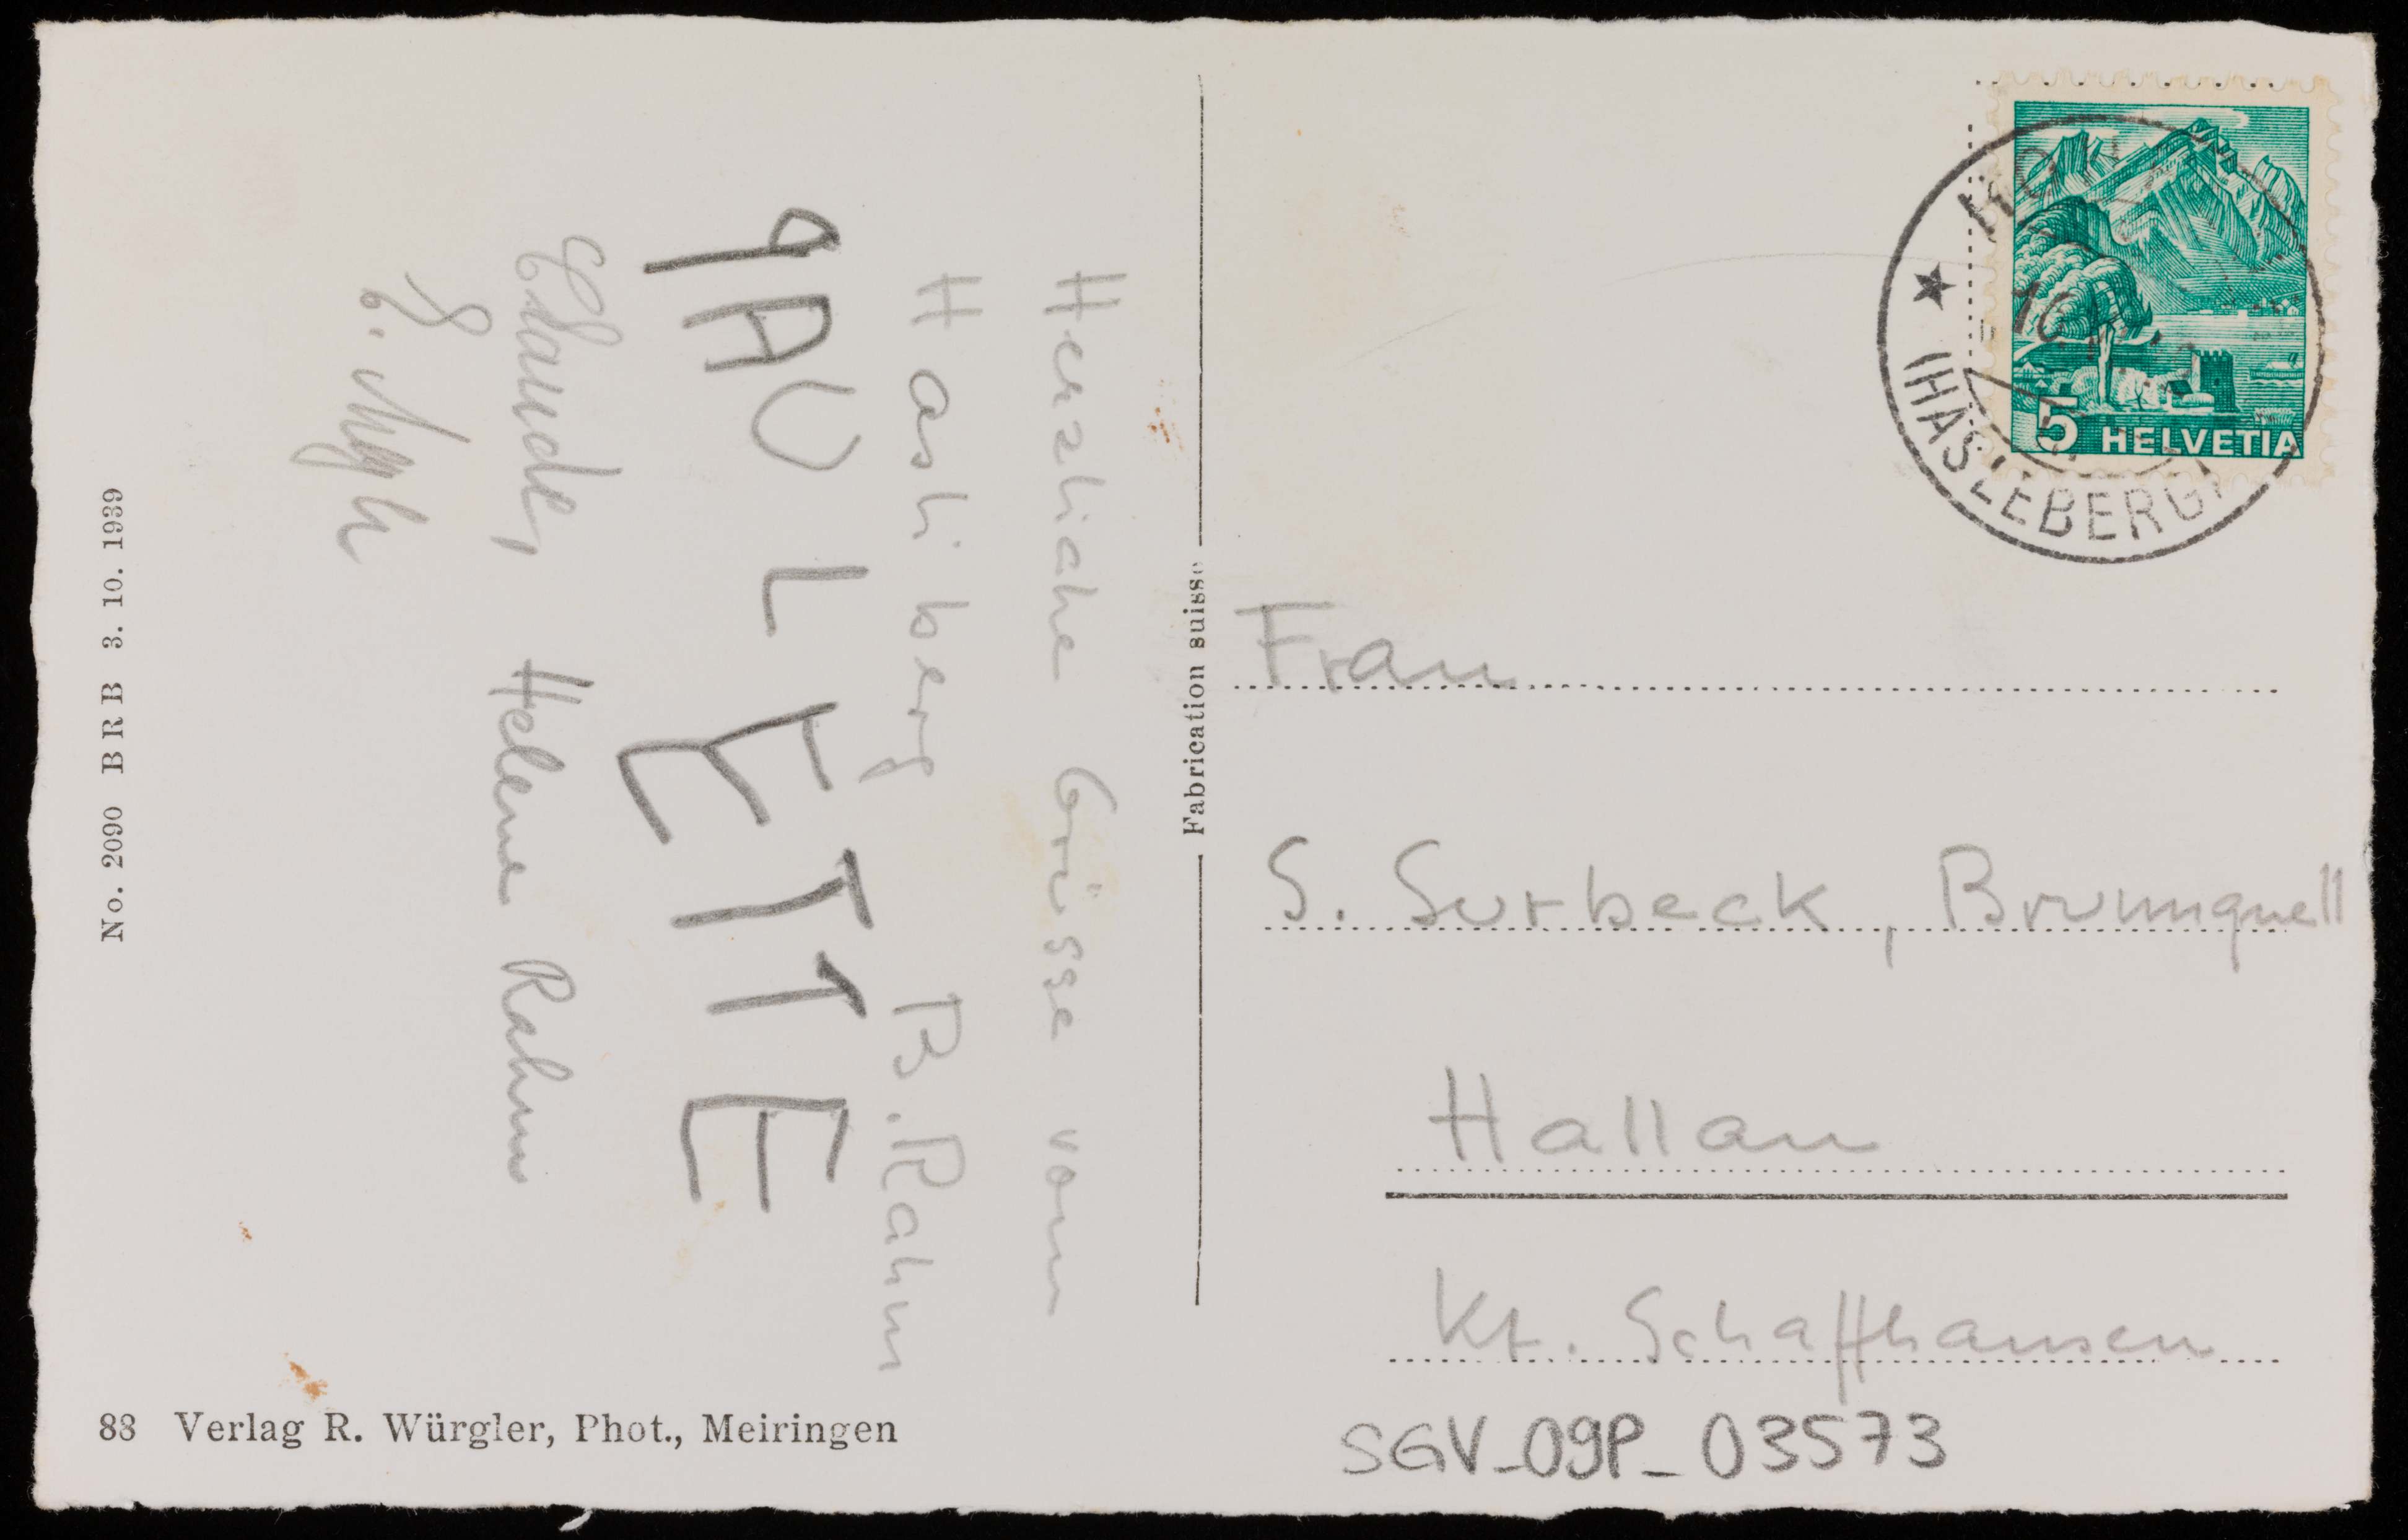 Herzliche Grüsse vom
Hasliberg B. Rahm
PAULETTE
Claude, Helene Rahm
No. 2090 BRB 3. 10. 1939
88 Verlag R. Würgler, Phot., Meiringen
Fabrication suisse
5 HELVETIA
(HASLEBERG)
Frau
S. Surbeck, Brunnquell
Hallau
Kt. Schaffhausen
SGV_09P_03573